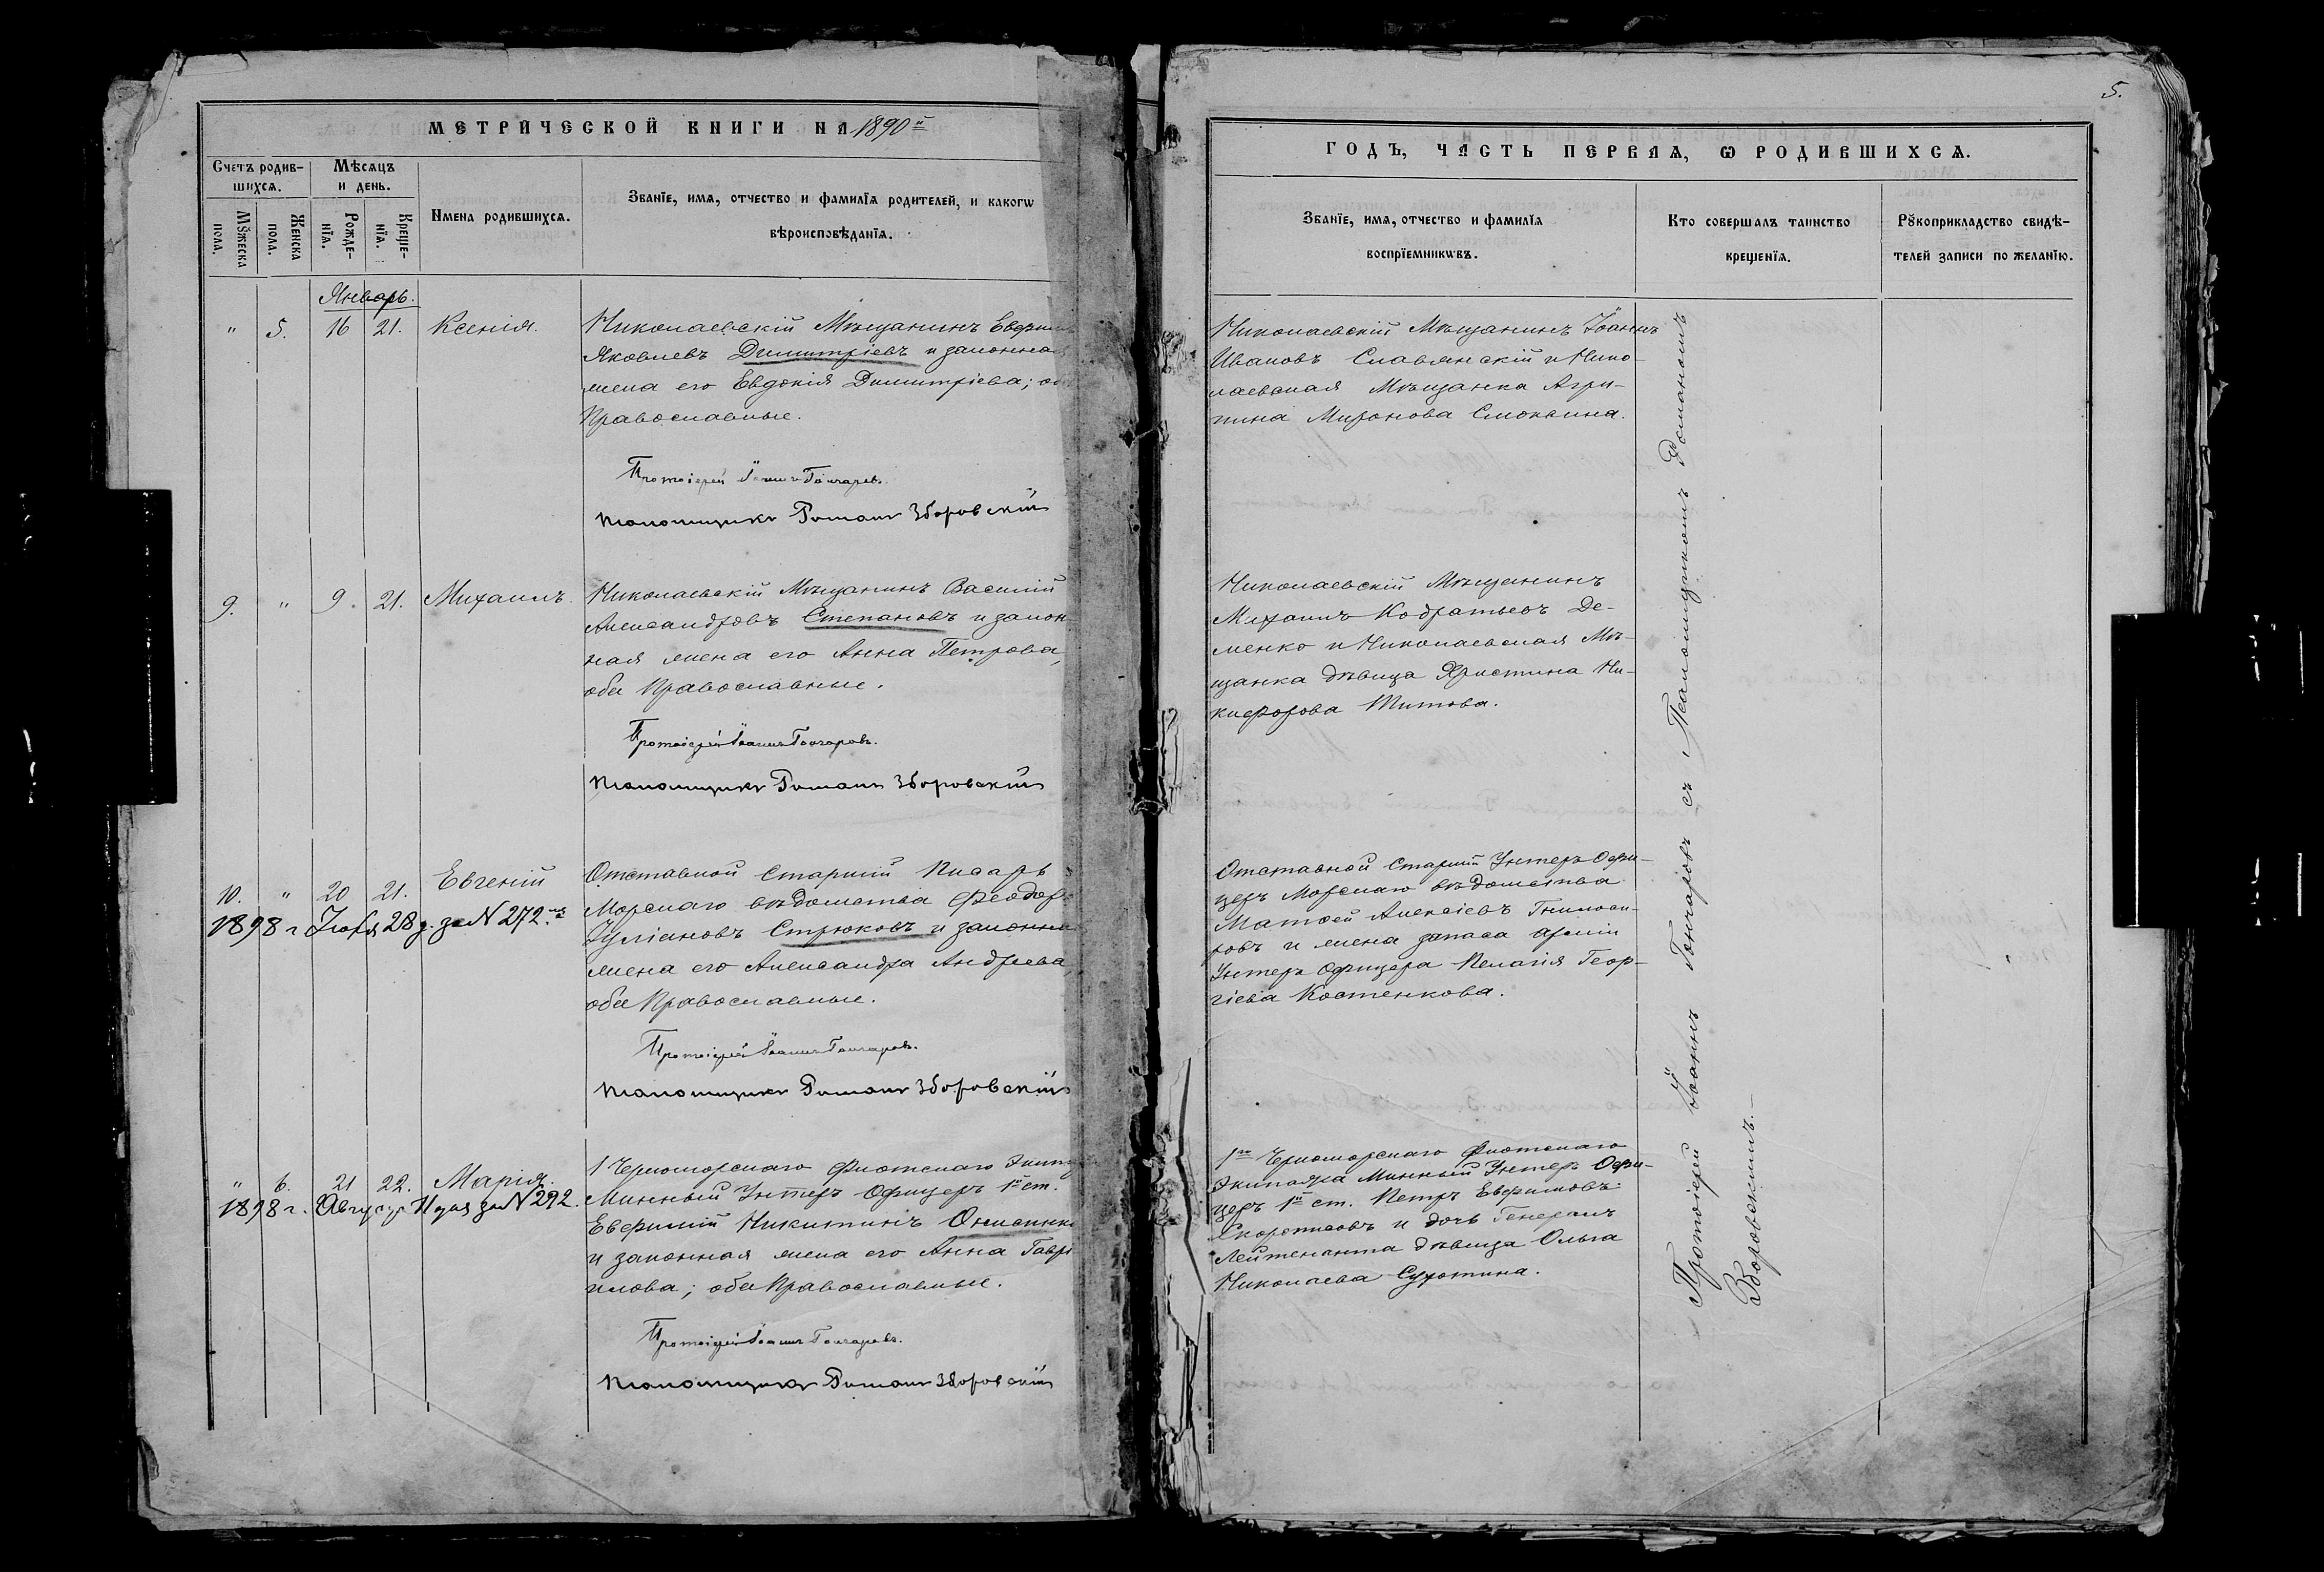 МЕТРИЧЕСКОЙ КНИГИ НА 1890й
Счетъ родив-
шихся.
Мѣсяцъ
и день.
Мꙋжеска
пола.
Женска
пола.
Рожде-
нїя.
Креще-
нїя.
Имена родившихся.
Званїе, имя, отчество и фамилїя родителей, и какогѡ
вѣроисповѣданїя.
Январь.
" 5. 16 21. Ксенія.
Николаевскій Мѣщанинъ
Яковлевъ Димитріевъ и законная
жена его Евдокія Димитріева;
Православные.
Протоіерей Іоаннъ Гончаровъ.
Псаломщикъ Романъ Зборовскій
9. " 9. 21. Михаилъ.
Николаевскій Мѣщанинъ Василій
Александровъ Степановъ и закон
ная жена его Анна Петрова,
оба Православные.
Протоіерей Іоаннъ Гончаровъ.
Псаломщикъ Романъ Зборовскій
10. " 20 21. Евгеній
1898 г. Іюля 28 д. за N 272.
Отставной Старшій Писарь
Морскаго вѣдомства Феодоръ
Стрюковъ и законная
жена его Александра Андреева,
оба Православные.
Протоіерей Іоаннъ Гончаровъ.
Псаломщикъ Романъ Зборовскій
" 6. 21 22. Марія.
1898 г. Августа 11 дня за N 292.
1 Черноморскаго Флотскаго
Минный Унтеръ Офицеръ 1й ст.
Евфимій Никитинъ
и законная жена его Анна Гаврі
илова; оба Православные.
Протоіерей Іоаннъ Гончаровъ.
Псаломщикъ Романъ Зборовскій
5.
ГОДЪ, ЧАСТЬ ПЕРВАЯ, Ѡ РОДИВШИХСЯ.
Званїе, имя, отчество и фамилїя
воспрїемникѡвъ.
Кто совершалъ таинство
крещенїя.
Рꙋкоприкладство свидѣ-
телей записи по желанїю.
Николаевскій Мѣщанинъ Іоаннъ
Ивановъ Славянскій и Нико-
лаевская Мѣщанка Агри-
пина Миронова Смоквина.
Николаевскій Мѣщанинъ
Михаилъ Кодратьевъ Де-
менко и Николаевская Мѣ-
щанка дѣвица Христина Ни-
кифорова Титова.
Отставной Старшій Унтеръ Офи-
церъ Морскаго вѣдомства
Матѳей Алексіевъ
и жена запаса арміи
Унтеръ Офицера Пелагія Геор-
гіева Костенкова.
1го Черноморскаго Флотскаго
Экипажа Минный Унтеръ Офи-
церъ 1й ст. Петръ Евфимовъ
и дочь Генералъ
Лейтенанта дѣвица Ольга
Николаева Сухотина.
Протоіерей Іоаннъ Гончаровъ съ Псаломщикомъ Романомъ
Зборовскимъ.